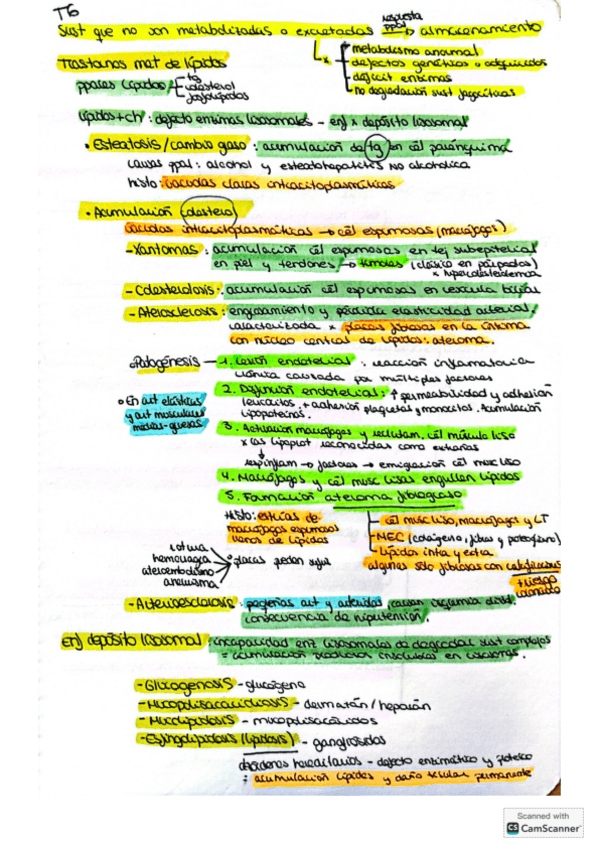 T6
Sust que no son metabolizadas o excretadas → respuesta ppal almacenamiento
x metabolismo anormal
- defectos genéticos o adquiridos
- déficit enzimas
- no degradación sust fagocíticas
Trastornos met de lípidos
ppales lípidos - tg
colesterol
fosfolípidos
lípidos + ch: defecto enzimas lisosomales - enf x depósito lisosomal
• Esteatosis / cambio graso: acumulación de tg en cél parénquima
causas ppal: alcohol y esteatohepatitis no alcohólica
histo: vacuolas claras intracitoplasmáticas
• Acumulación colesterol
vacuolas intracitoplasmáticas → cél espumosas (macrófagos)
- Xantomas: acumulación cél espumosas en tej subepitelial
en piel y tendones → tumores (clásico en párpados)
x hipercolesterolemia
- Colesterolosis: acumulación cél espumosas en vesícula biliar
- Aterosclerosis: engrosamiento y pérdida elasticidad arterial,
caracterizada x placas fibrosas en la íntima
con núcleo central de lípidos: ateroma.
Patogénesis — 1. Lesión endotelial: reacción inflamatoria
crónica causada por múltiples factores
En art elásticas
y art musculares
medias-gruesas
2. Disfunción endotelial: ↑ permeabilidad y adhesión
leucocitos, + adhesión plaquetas y monocitos. Acumulación
lipoproteínas.
3. Activación macrófagos y reclutam. cél músculo liso
x las lipoprot reconocidas como extrañas
→ factores → emigración cél musc liso
4. Macrófagos y cél musc lisas engullen lípidos
5. Formación ateroma fibrograso
histo: estrías de
macrófagos espumosos
llenos de lípidos
- cél musc liso, macrófagos y LT
- MEC (colágeno, fibras y proteogluc)
- Lípidos intra y extra
algunas sólo fibrosas con calcificaciones
+ riesgo
rotura
hemorragia
ateroembolismo
aneurisma
placas pueden sufrir
- Arterioesclerosis: pequeñas art y arteriolas, causan isquemia distal.
consecuencia de hipertensión.
Enf depósito lisosomal: incapacidad enz lisosomales de degradar sust complejos
= acumulación productos insolubles en lisosomas.
- Glucogenosis - glucógeno
- Mucopolisacaridosis - dermatán / heparán
- Mucolipidosis - mucopolisacáridos
- Esfingolipidosis (lipidosis) - gangliósidos
desórdenes hereditarios - defecto enzimático y
: acumulación lípidos y daño celular permanente
Scanned with
CS CamScanner